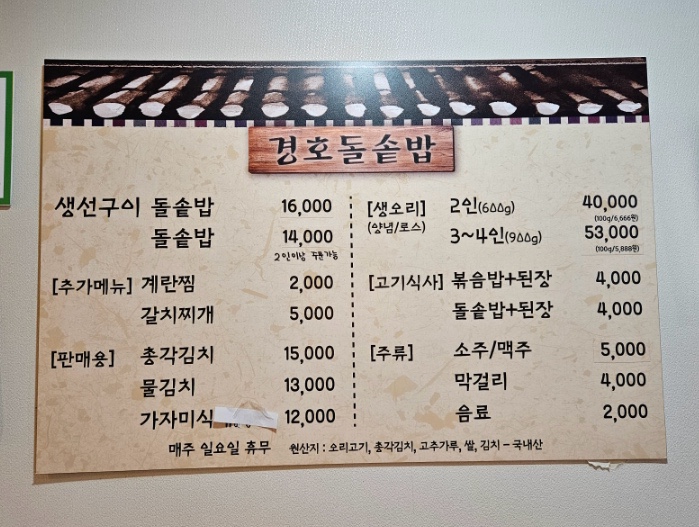 경호돌솥밥
생선구이 돌솥밥 16,000
돌솥밥 14,000
2인이상 주문가능
[추가메뉴] 계란찜 2,000
갈치찌개 5,000
[판매용] 총각김치 15,000
물김치 13,000
가자미식 12,000
[생오리] 2인(600g) 40,000
(양념/로스) (100g/6,666원)
3~4인(900g) 53,000
(100g/5,888원)
[고기식사] 볶음밥+된장 4,000
돌솥밥+된장 4,000
[주류] 소주/맥주 5,000
막걸리 4,000
음료 2,000
매주 일요일 휴무 원산지 : 오리고기, 총각김치, 고추가루, 쌀, 김치 - 국내산